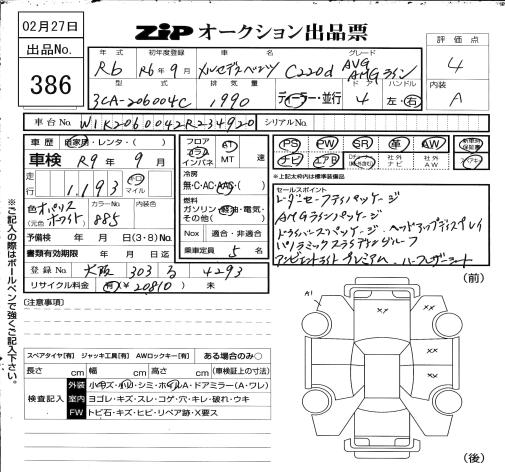 02月27日
ZIP オークション出品票
出品No.
386
年式 初年度登録 車名 グレード 評価点
R6 R6年9月 メルセデスベンツ C220d AVG AMGライン 4
型式 排気量 ドア ハンドル 内装
3CA-206004C 1990 ディーラー・並行 4 左・右 A
車台No. W1K2060042R234920 シリアルNo.
車歴 自家用・レンタ・( )
車検 R9年9月
走行 1,193 キロ マイル
色 オパリスホワイト カラーNo. 885 内装色
(元色 )
予備検 年 月 日(3・8)No.
書類有効期限 年 月 日
登録No. 大阪 303 る 4293
リサイクル料金 有(¥20810) 未
フロア コラム インパネ AT MT 速
冷房 無・C・AC・AAC・( )
燃料 ガソリン・軽油・電気・その他( )
Nox 適合・非適合
乗車定員 5 名
PS PW SR 革 AW 新車時保証書
ナビ エアB 社外ナビ 社外AW
※上記太枠内は標準装備品
セールスポイント
レーダーセーフティパッケージ
AMGラインパッケージ
ドライバーズパッケージ ヘッドアップディスプレイ
パノラミックスライディングルーフ
アンビエントライトプレミアム ハーフレザーシート
※ご記入の際はボールペンで強くご記入下さい。
(注意事項)
スペアタイヤ[有] ジャッキ工具[有] AWロックキー[有] ある場合のみ○
長さ cm 幅 cm 高さ cm (車検証上の寸法)
検査記入
外装 小キズ・小凹・シミ・ホイルA・ドアミラー(A・ワレ)
室内 ヨゴレ・キズ・スレ・コゲ・穴・キレ・破れ・ウキ
FW トビ石・キズ・ヒビ・リペア跡・X要ス
(前)
A1
XX
XX
XX
(後)